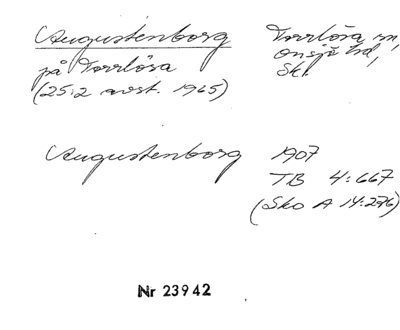 Augustenborg
på Torrlösa
(25:2 avst. 1965)
Torrlösa sn,
Onsjö hd,
Sk.
Augustenborg 1907
TB 4:667
(Sko A 14:276)
Nr 23942